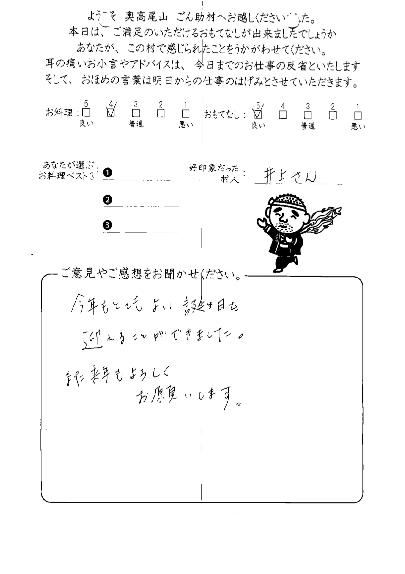 ようこそ 奥高尾山 ごん助村へお越しくださいました。
本日は、ご満足のいただけるおもてなしが出来ましたでしょうか
あなたが、この村で感じられたことをうかがわせてください。
耳の痛いお小言やアドバイスは、今日までのお仕事の反省といたします
そして、おほめの言葉は明日からの仕事のはげみとさせていただきます。
お料理: 5 4 3 2 1 おもてなし: 5 4 3 2 1
良い 普通 悪い 良い 普通 悪い
あなたが選ぶ お料理ベスト3: ❶
❷
❸
好印象だった 村人: 井上さん
ご意見やご感想をお聞かせください。
今年もとても よい 誕生日を
迎えることができました。
また来年もよろしく
お願いします。